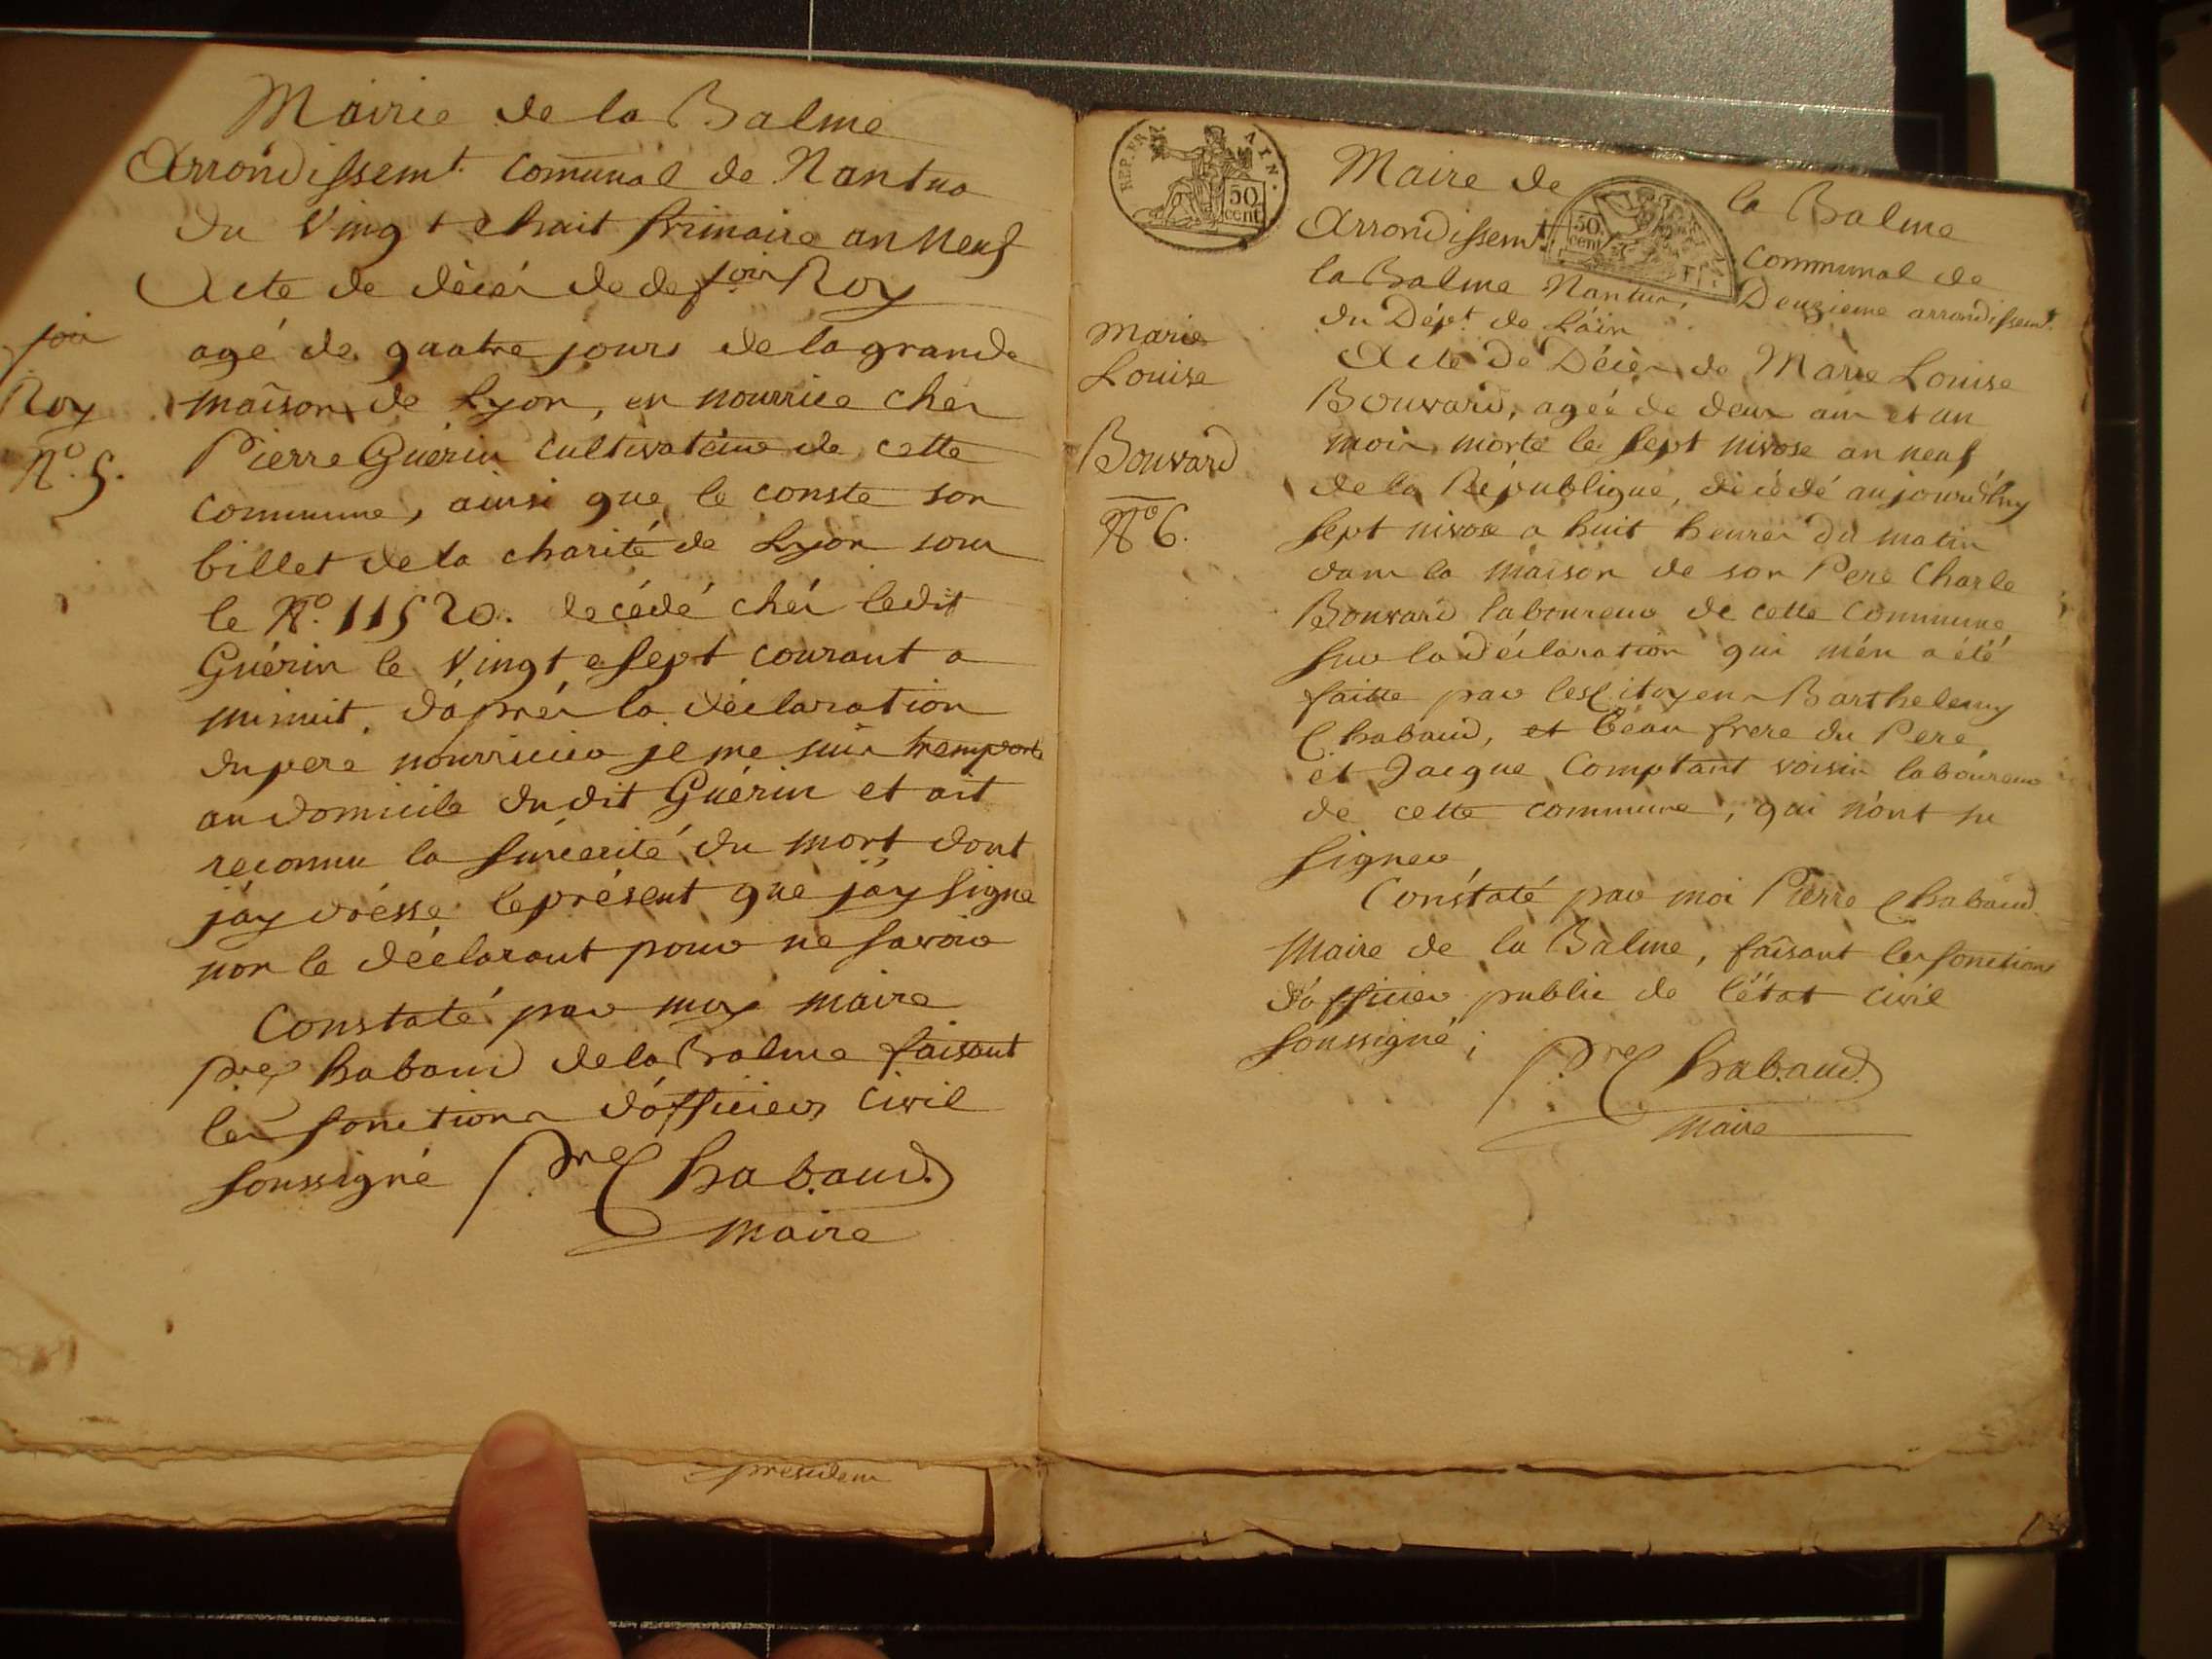 Mairie de la Balme
Arrondissemt. communal de Nantua
du Vingt e huit frimaire an neuf
Acte de décés de de Roy
Roy
N.º 5.
agé de quatre jours de la grande
maison de Lyon, en nourrice chés
Pierre Guérin cultivateur de cette
commune, ainsi que le conste son
billet de la charité de Lyon sous
le Nº. 11520. decédé chés ledit
Guérin le Vingt e sept courant a
minuit, d'aprés la déclaration
du pere nourricier je me suis tremporté
au domicile du dit Guérin et ait
reconnu la sincérité du mort dont
j'ay dréssé le présent que j'ay signé
non le déclarant pour ne savoir
Constaté par moy maire
pre Chabaud de la Balme faisant
les fonctions d'officier civil
soussigné Pre Chabaud
maire
president
REP. FRA AIN.
50 cent
Maire de la Balme
50 cent
Arrondissemt. communal de
la Balme Nantua, Deuzieme arrondissemt.
du Dépt. de L'ain
Marie
Louise
Bouvard
Nº 6.
Acte de Décès de Marie Louise
Bouvard, agée de deux ans et un
mois, morte le sept nivose an neuf
de la République, décédé aujourd'huy
sept nivose a huit heures du matin
dans la maison de son Pere Charle
Bouvard laboureur de cette commune
sur la déclaration qui m'en a été
faitte par les Citoyens Barthelemy
Chabaud, et béau frere du Pere,
et Jacque Comptant voisin laboureur
de cette commune, qui n'ont su
signer
Constaté par moi Pierre Chabaud
Maire de la Balme, faisant les fonctions
d'officier public de l'état civil
soussigné;
Pre Chabaud
maire